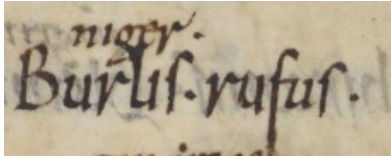 niger.
Burlis. rufus.